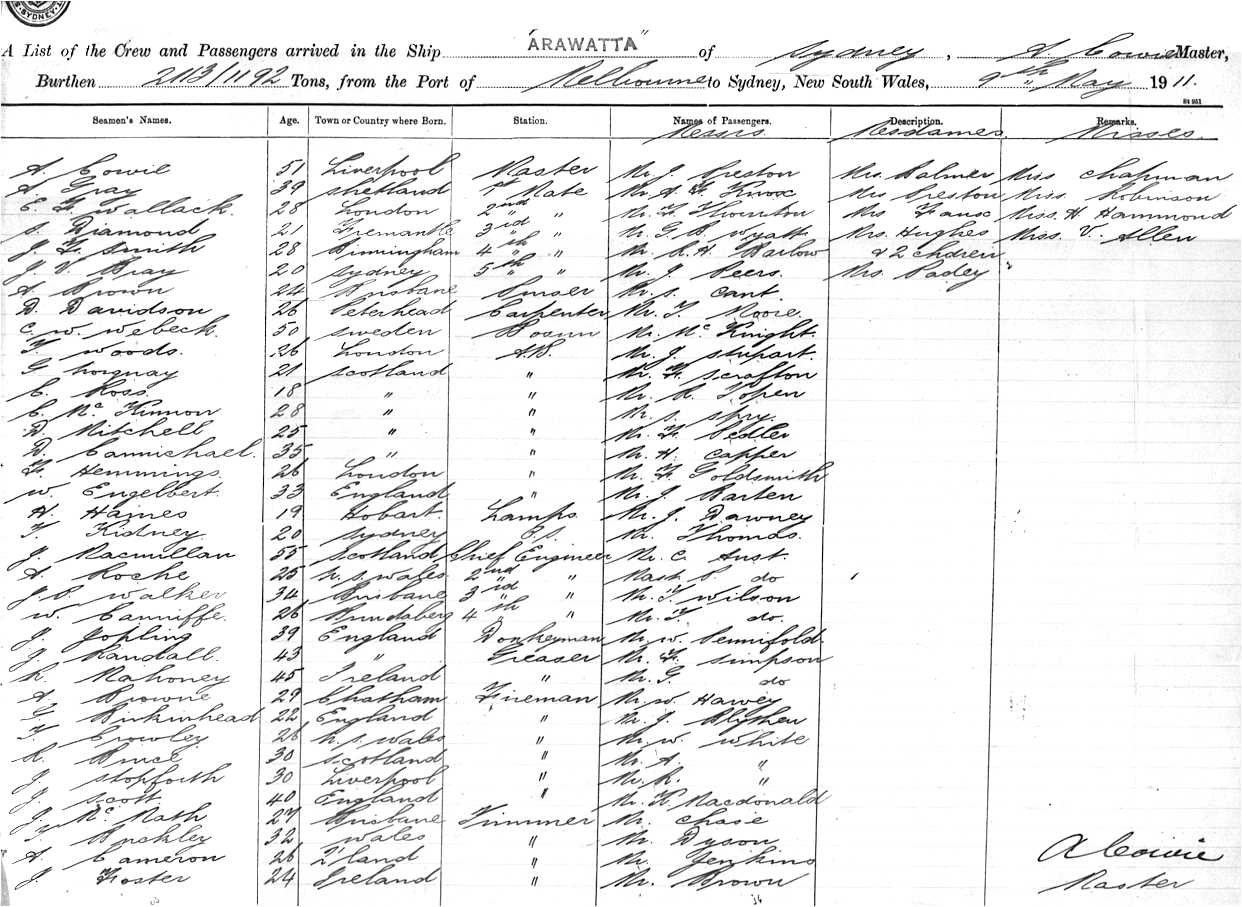 SYDNEY
A List of the Crew and Passengers arrived in the Ship "ARAWATTA" of Sydney, A. Cowie Master,
Burthen 2113/1192 Tons, from the Port of Melbourne to Sydney, New South Wales, 9th May 1911.
St 951
Seamen's Names. Age. Town or Country where Born. Station. Names of Passengers. Description. Remarks.
Messrs Mesdames. Misses.
A. Cowie 51 Liverpool Master Mr J. Preston Mrs. Balmer Miss Chapman
A. Gray 39 Shetland 1st Mate Mr A. F. Knox Mrs Preston Miss. Robinson
E. F. Wallack. 28 London 2nd " Mr F. Thornton Mrs Miss. H. Hammond
S. Diamond 21 Fremantle 3rd " Mr G. B. Wyatt Mrs. Hughes Miss. V. Allen
J. F. Smith 28 Birmingham 4th " Mr. R. H. Barlow & 2 chdren
J. V. Bray 20 Sydney 5th " Mr. J. Peers. Mrs. Padey
A. Brown 24 Brisbane Purser Mr. S. Cant.
D. Davidson 26 Peterhead Carpenter Mr. T. Moore.
C. W. Webeck. 50 Sweden Bosun Mr. McKnight.
T. Woods. 26 London A.B. Mr. J. Stupart.
G 21 Scotland " Mr. F. Scrafton
C. Ross. 18 " " Mr. R. Topen
C. McKinnon 28 " " Mr. S. Spry.
D. Mitchell 25 " " Mr. F. Pedler
D. Carmichael. 35 " " Mr. H. Capper
F. Hemmings. 26 London " Mr. F. Goldsmith
W. Engelbert. 33 England " Mr. J. Barten
H. Haines 19 Hobart Lamps. Mr. J. Dawney
T. Kidney. 20 Sydney O.S. Mr. Thomas.
J. Macmillan 55 Scotland Chief Engineer Mr. C. Aust.
A. Roche 25 N. S. Wales 2nd " Mast. P. do
J. C. Walker 34 Brisbane 3rd " Mr. T. Wilson
W. Canniffe. 26 Bundaberg 4th " Mr. T. do.
J. Jopling 39 England Donkeyman Mr. W. Pennifold.
J. Randall. 43 " Greaser Mr. F. Simpson
R. Mahoney 45 Ireland " Mr. G. do
A. Browne 29 Chatham Fireman Mr. W. Harvey
F. Birkinhead 22 England " Mr. J. Blythen
T. Crowley 26 N. S. Wales " Mr. W. White
R. Bruce 30 Scotland " Mr. A. "
J. Stopforth 30 Liverpool " Mr. R. "
J. Scott 40 England " Mr. K. Macdonald
J. McMath 27 Brisbane Trimmer Mr. Chase
T. Buckley 32 Wales " Mr. Dyson
A. Cameron 26 Z'land " Mr. Jenkins A Cowie
J. Foster 24 Ireland " Mr. Brown Master
36